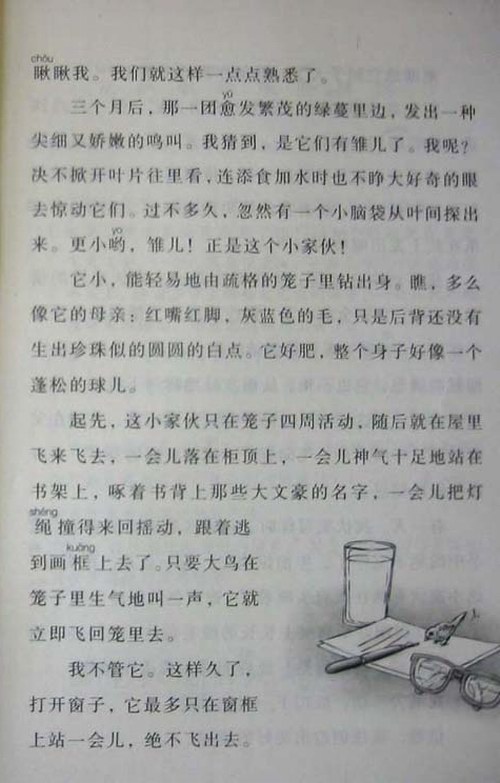 chǒu
瞅瞅我。我们就这样一点点熟悉了。
yù
三个月后，那一团愈发繁茂的绿蔓里边，发出一种
尖细又娇嫩的鸣叫。我猜到，是它们有雏儿了。我呢？
决不掀开叶片往里看，连添食加水时也不睁大好奇的眼
去惊动它们。过不多久，忽然有一个小脑袋从叶间探出
yo
来。更小哟，雏儿！正是这个小家伙！
它小，能轻易地由疏格的笼子里钻出身。瞧，多么
像它的母亲：红嘴红脚，灰蓝色的毛，只是后背还没有
生出珍珠似的圆圆的白点。它好肥，整个身子好像一个
蓬松的球儿。
起先，这小家伙只在笼子四周活动，随后就在屋里
飞来飞去，一会儿落在柜顶上，一会儿神气十足地站在
书架上，啄着书背上那些大文豪的名字，一会儿把灯
shéng
绳撞得来回摇动，跟着逃
kuàng
到画框上去了。只要大鸟在
笼子里生气地叫一声，它就
立即飞回笼里去。
我不管它。这样久了，
打开窗子，它最多只在窗框
上站一会儿，绝不飞出去。